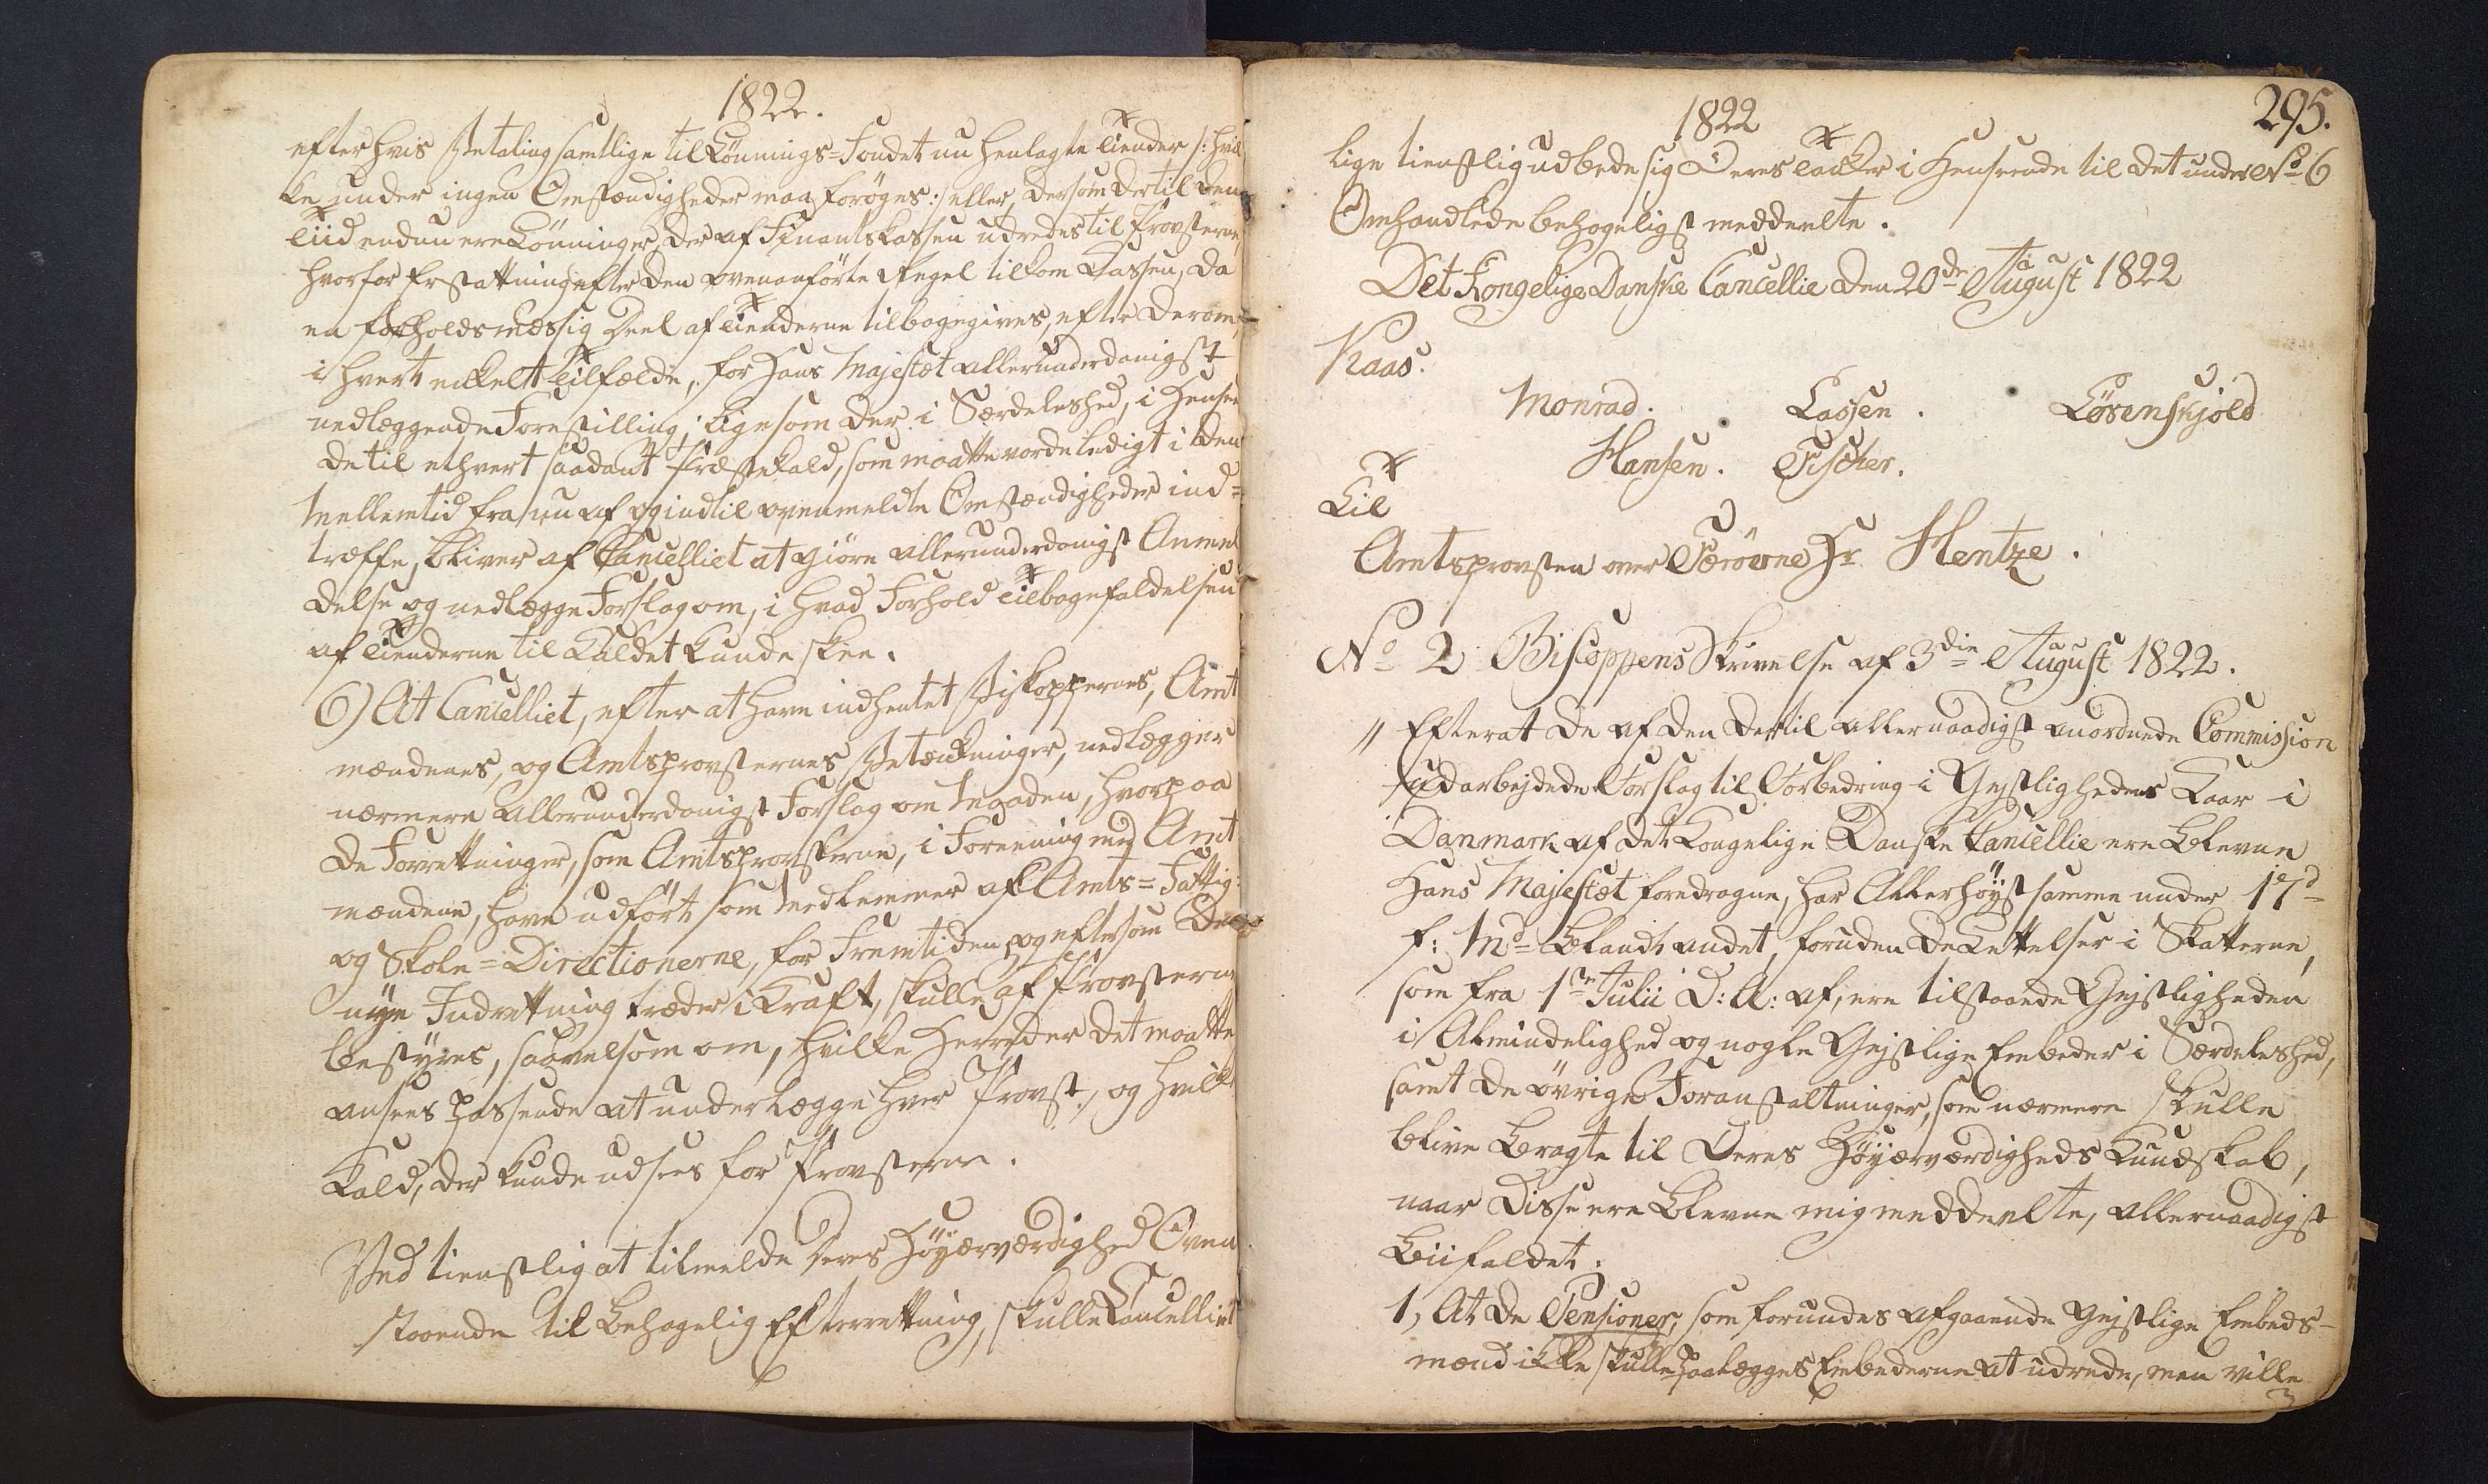 1822.
efter hvis Betaling samtlige til Lønnings=Fondet nu henlagte Tiender /: hvil
ke under ingen Omstændigheder maa forøges :/ eller, dersom der til den
Tiid endnu ere Lønninger, der af Finantskassen udredes til Provsterne,
hvorfor Erstatning efter den ovenanførte Regel tilkom Kassen, da
en forholdsmæssig Deel af Tienderne tilbagegives, efter derom,
i hvert enkelt Tilfælde, for Hans Majestæt allerunderdanigst
nedlæggende Forestilling; ligesom der i Særdeleshed, i Hensee
de til ethvert saadant Præstekald, som maatte vorde ledigt i den
Mellemtid fra nu af og indtil ovenmeldte Omstændigheder ind=
træffe, bliver af Cancelliet at giøre allerunderdanigst Anmel
delse og nedlægge Forslag om, i hvad Forhold Tilbagefaldelsen
af Tienderne til Kaldet kunde skee.
6) At Cancelliet, efter at have indhentet Biskoppernes, Amt
mændenes, og Amtsprovsternes Betænkninger, nedlægger
nærmere allerunderdanigst Forslag om Maaden, hvorpaa
de Forretninger, som Amtsprovsterne, i Forening med Amt
mændene, have udført som Medlemmer af Amts=Fattig=
og Skole=Directionerne, for Fremtiden, og eftersom den
nye Indretning træder i Kraft, skulle af Provsterne
bestyres, saavelsom om, hvilke Herreder det maatte
ansees passende at underlægge hver Provst, og hvilke
Kald, der kunde udsees for Provsterne.
Ved tienstligat tilmelde Deres Høyærværdighed Oven
staaende til behagelig Efterretning, skulle Cancelliet
1822
295.
lige tienstlig udbede sig Deres Tanker i Henseende til det under No 6
Omhandlede behageligst meddeelte.
Det Kongelige Danske Cancellie den 20de August 1822
Kaas.
Monrad. Lassen. Løvenskjold
Hansen. Fischer.
Til
Amtsprovsten over Færøerne Hr Hentze.
No 2 Biscoppens Skrivelse af 3die August 1822.
" Efterat de af den dertil allernaadigst anordnede Commission
udarbejdede Forslag til Forbedring i Gejstlighedens Kaar i
Danmark af det Kongelige Danske Cancellie ere blevne
Hans Majestæt foredragne, har Allerhøystsamme under 17d
f: Md blandt andet, foruden de Lettelser i Skatterne,
som fra 1ste Julii D: A: af, ere tilstaaede Gejstligheden
i Almindelighed og nogle Gejstlige Embeder i Særdeleshed,
samt de øvrige Foranstaltninger, som nærmere skulle
blive bragte til Deres Høyærværdigheds Kundskab,
naar disse ere blevne mig meddeelte, allernaadigst
biifaldet:
1, At de Pensioner, som forundes afgaaende Gejstlige Embeds-
mænd ikke skulle paalægges Embederne at udrede, men ville